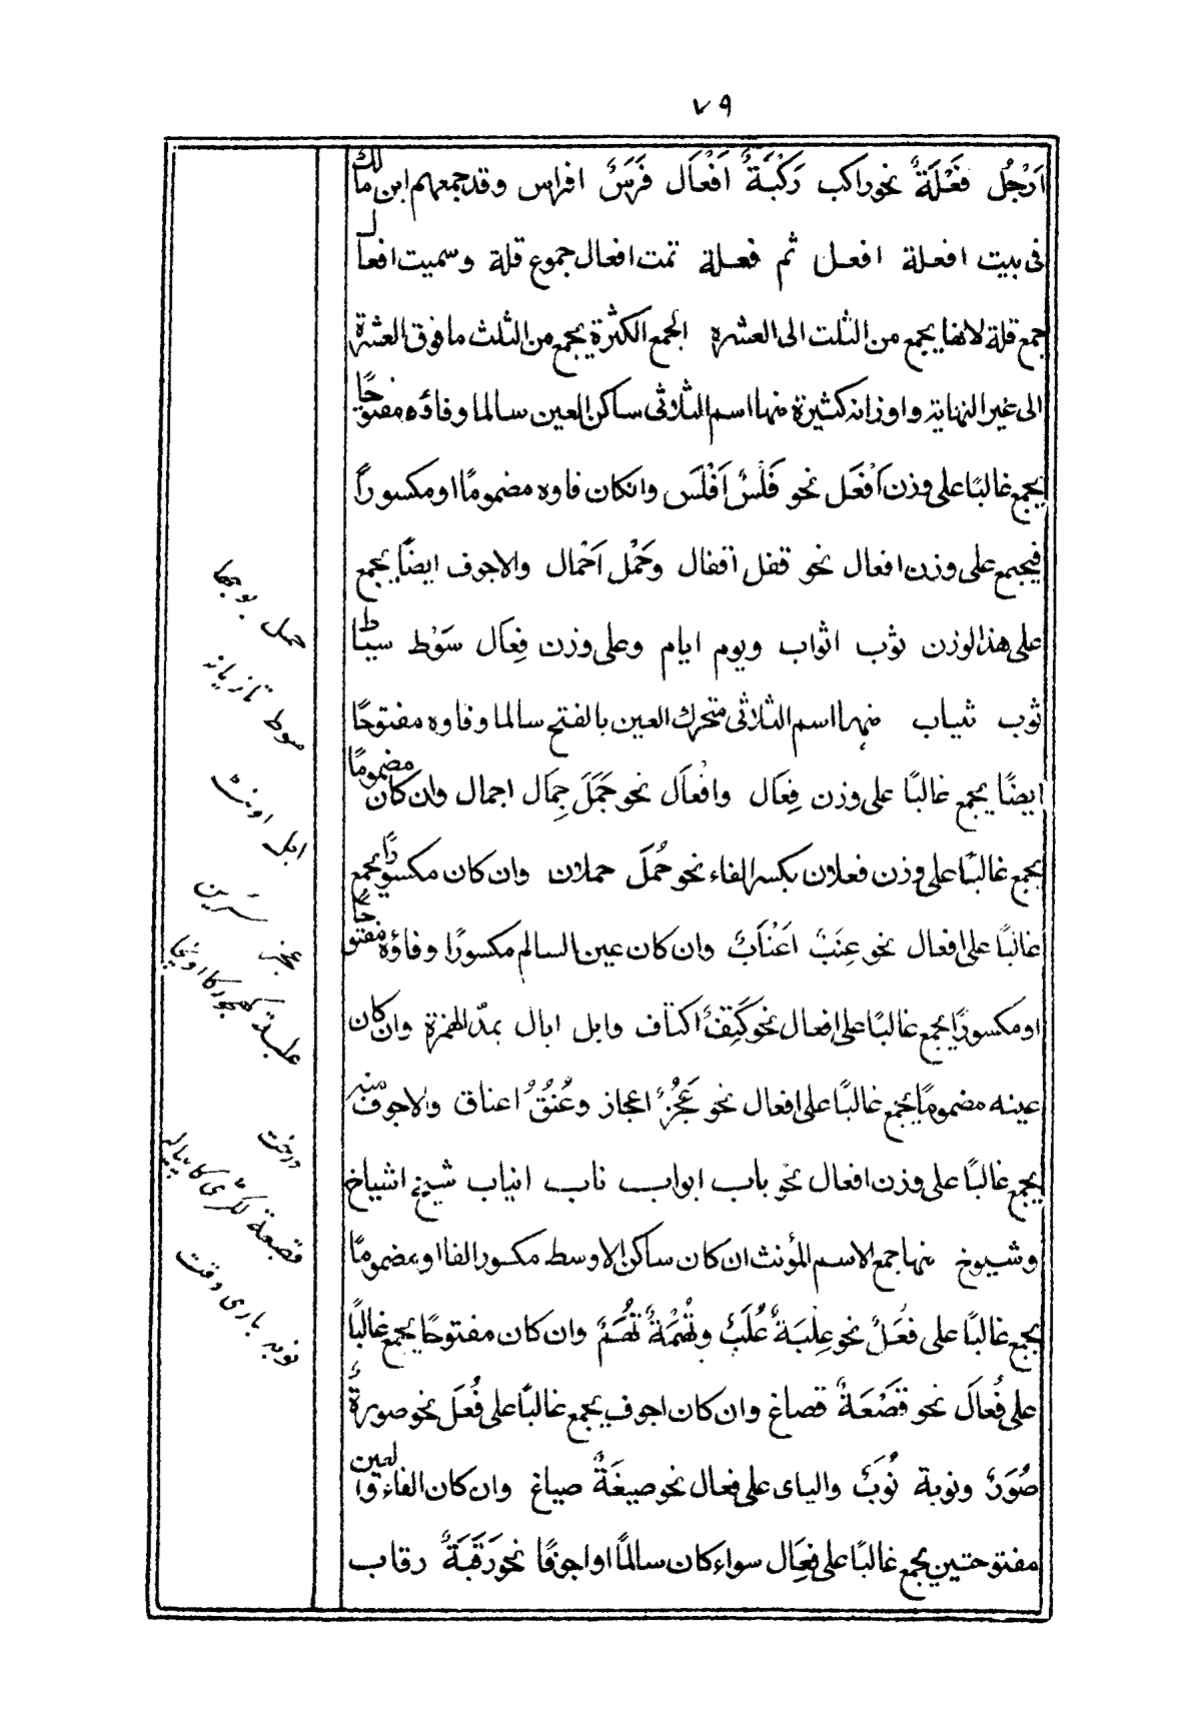 ٧٩
اَرْجُل فَعْلَةٌ نحو راكب رَكْبَةٌ اَفْعَال فَرَسٌ افراس وقد جمعهم ابن مالك
فى بيت افعلة افعل ثم فعلة تمت افعال جموع قلة وسميت افعال
جمع قلة لانها يجمع من الثلث الى العشره الجمع الكثرة يجمع من الثلث ما فوق العشرة
الى غير النهاية واوزانه كثيرة منها اسم الثلاثى ساكن العين سالما وفاؤه مفتوحًا
يجمع غالبًا على وزن اَفْعَل نحو فَلْسٌ اَفْلَس وانكان فاوه مضمومًا او مكسورًا
فيجمع على وزن افعال نحو قفل اقفال وحَمْل اَحْمال والاجوف ايضًا يجمع
على هذالوزن ثوب اثواب ويوم ايام وعلى وزن فِعَال سَوْط سياط
ثوب ثياب منها اسم الثلاثى متحرك العين بالفتح سالما وفاوه مفتوحًا
ايضًا يجمع غالبًا على وزن فِعَال وافْعَال نحو جَمَلَ جِمَال اجمال وان كان مضمومًا
يجمع غالبًا على وزن فعلان بكسر الفاء نحو حُمَلَ حملان وان كان مكسورًا يجمع
غالبًا على افعال نحو عِنَبٌ اَعْنَابٌ وان كان عين السالم مكسورًا وفاؤه مفتوحًا
او مكسورًا يجمع غالبًا على افعال نحو كَتِفٌ اكتاف وابل ابال بمدّ الهمزة وان كان
عينه مضمومًا يجمع غالبًا على افعال نحو عَجُزٌ اعجاز وعُنُقٌ اعناق والاجوف منه
يجمع غالبًا على وزن افعال نحو باب ابواب ناب انياب شيخ اشياخ
وشيوخ منها جمع لاسم المؤنث ان كان ساكن الاوسط مكسور الفا او مضمومًا
يجمع غالبًا على فعَلٌ نحو عِلْبَةٌ عُلَبٌ وتُهْمَةٌ تُهَمٌ وان كان مفتوحًا يجمع غالبًا
على فُعالَ نحو قَصْعَةٌ قصاغ وان كان اجوف يجمع غالبًا على فُعَل نحو صورةٌ
صُوَرٌ ونوبة نُوَبٌ والياى على فعال نحو صيغَةٌ صياغ وان كان الفاء والعين
مفتوحتين يجمع غالبًا على فِعَال سواء كان سالمًا او اجوفًا نحو رَقَبَةٌ رقاب
حمل بوجھا
سوط تازیانہ
ابل اونٹ
عجز سَرین
علبة کھجور کا اونچا
درخت
قصعة لکڑی کا پیالہ
نوبہ باری وقت